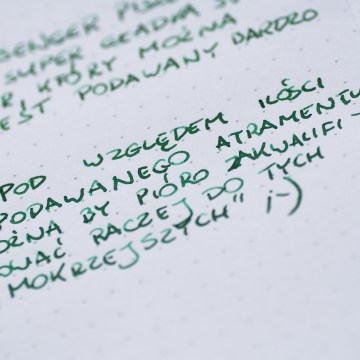 SENGER
SUPER GŁADKA
RI KTÓRY MOŻNA
EST PODAWANY BARDZO
POD WZGLĘDEM ILOŚCI
PODAWANEGO ATRAMENTU
OŻNA BY PIÓRO ZAKWALIFI-
OWAĆ RACZEJ DO TYCH
MOKRZEJSZYCH" ;-)